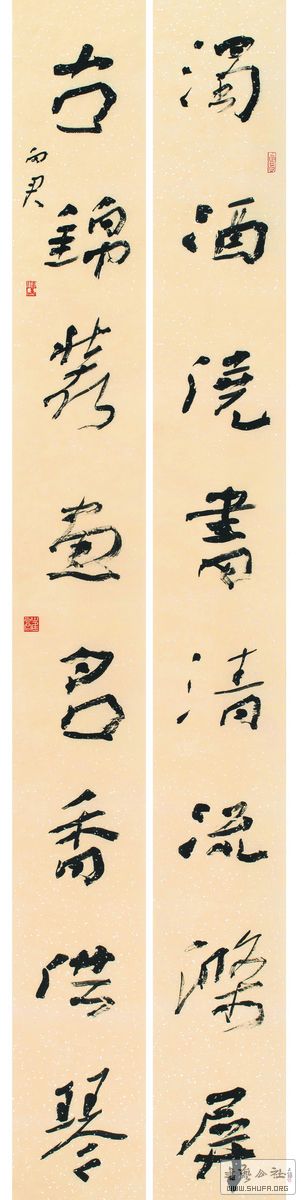 濁酒澆書清流滌屏
古錦裝畫名香供琴
书艺公社
WWW.SHUFA.ORG